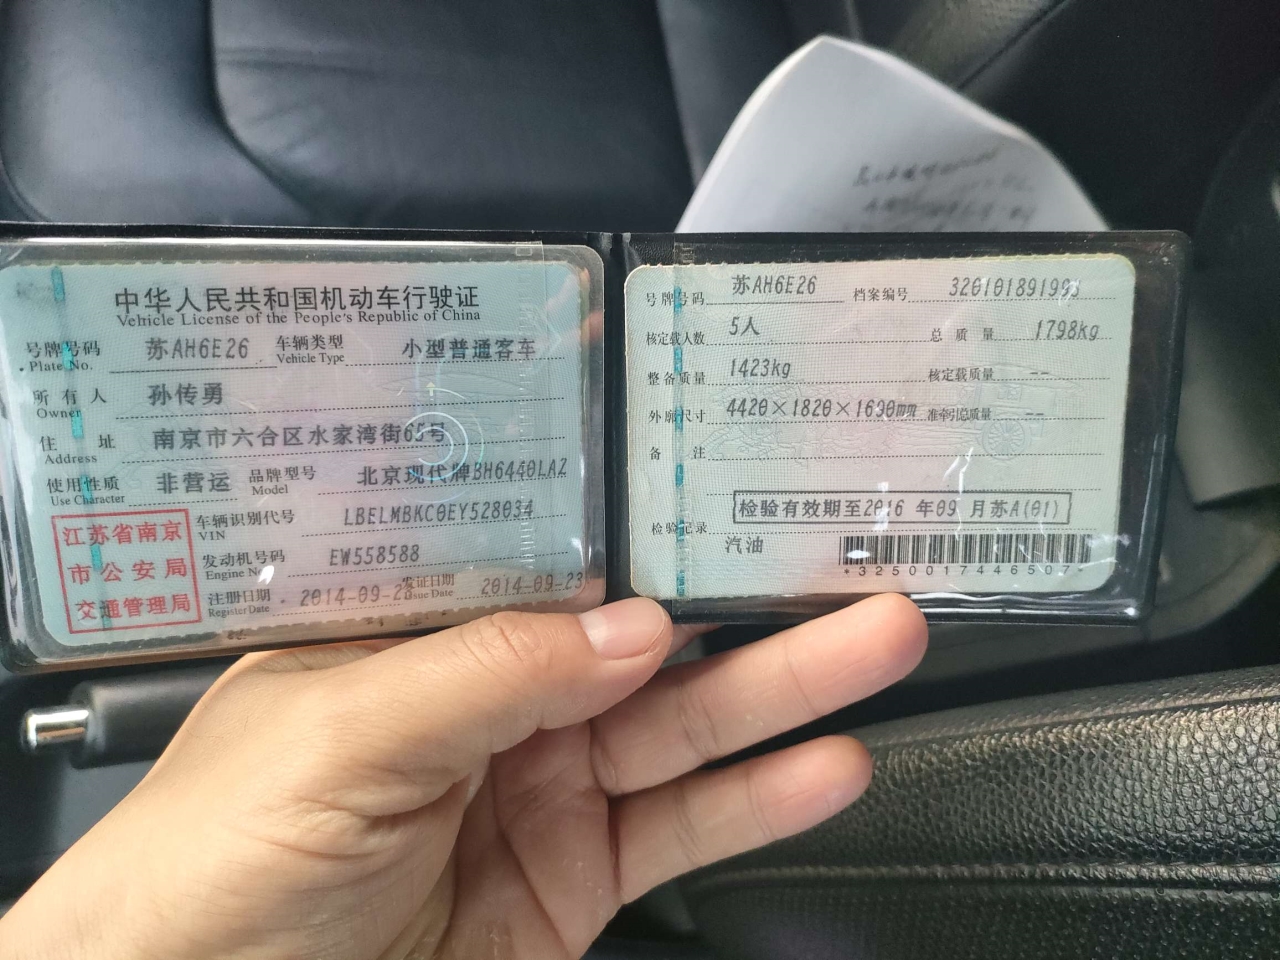 中华人民共和国机动车行驶证
Vehicle License of the People's Republic of China
号牌号码 苏AH6E26 车辆类型 小型普通客车
Plate No. Vehicle Type
所有人 孙传勇
Owner
住址 南京市六合区水家湾街65号
Address
使用性质 非营运 品牌型号 北京现代牌BH6440LAZ
Use Character Model
江苏省南京
市公安局
交通管理局
车辆识别代号 LBELMBKC0EY528034
VIN
发动机号码 EW558588
Engine No.
注册日期 2014-09-23 发证日期 2014-09-23
Register Date Issue Date
号牌号码 苏AH6E26 档案编号 320101891993
核定载人数 5人 总质量 1798kg
整备质量 1423kg 核定载质量 --
外廓尺寸 4420×1820×1690mm 准牵引总质量 --
备注
检验有效期至2016年09月苏A(01)
检验记录
汽油
*3250017446507*